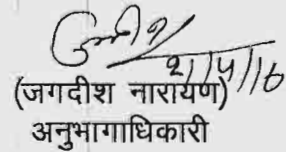 21/4/16
(जगदीश नारायण)
अनुभागाधिकारी